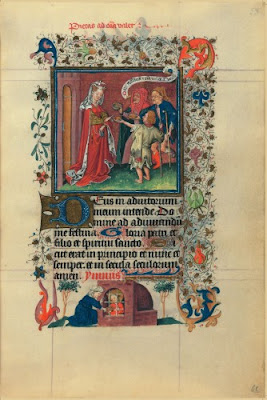 Deus in adiutorium
meum intende. Do
mine ad adiuvandu
me festina. Gloria patri et
filio et spiritui sancto. Si
cut erat in principio et nunc et
semper. et in secula seculorum
amen. Ymnus